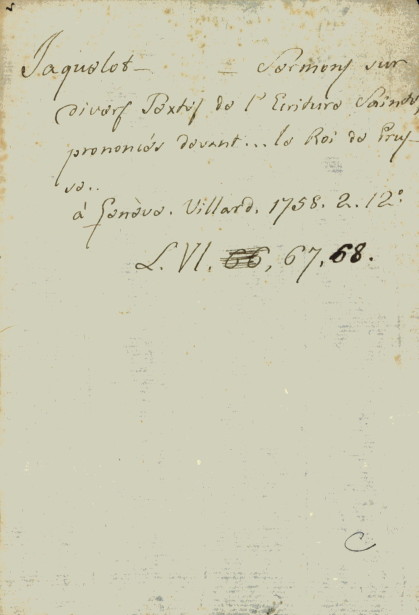 Jaquelot — — Sermons sur
divers Textes de l'Ecriture Sainte,
prononcés devant... le Roi de Prus-
se..
à Genève. Villard. 1758. 2. 12°.
L. VI. 66, 67, 68.
C